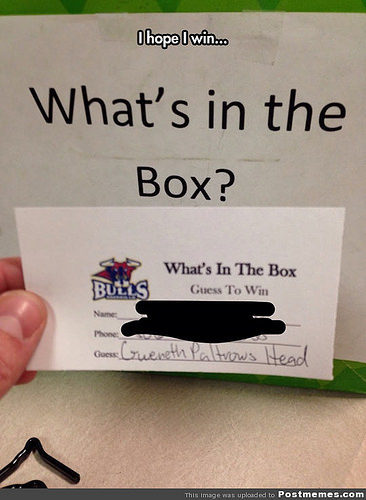 I hope I win...
What's in the
Box?
BULLS
What's In The Box
Guess To Win
Name:
Phone:
Guess: Gweneth Paltrows Head
This image was uploaded to Postmemes.com